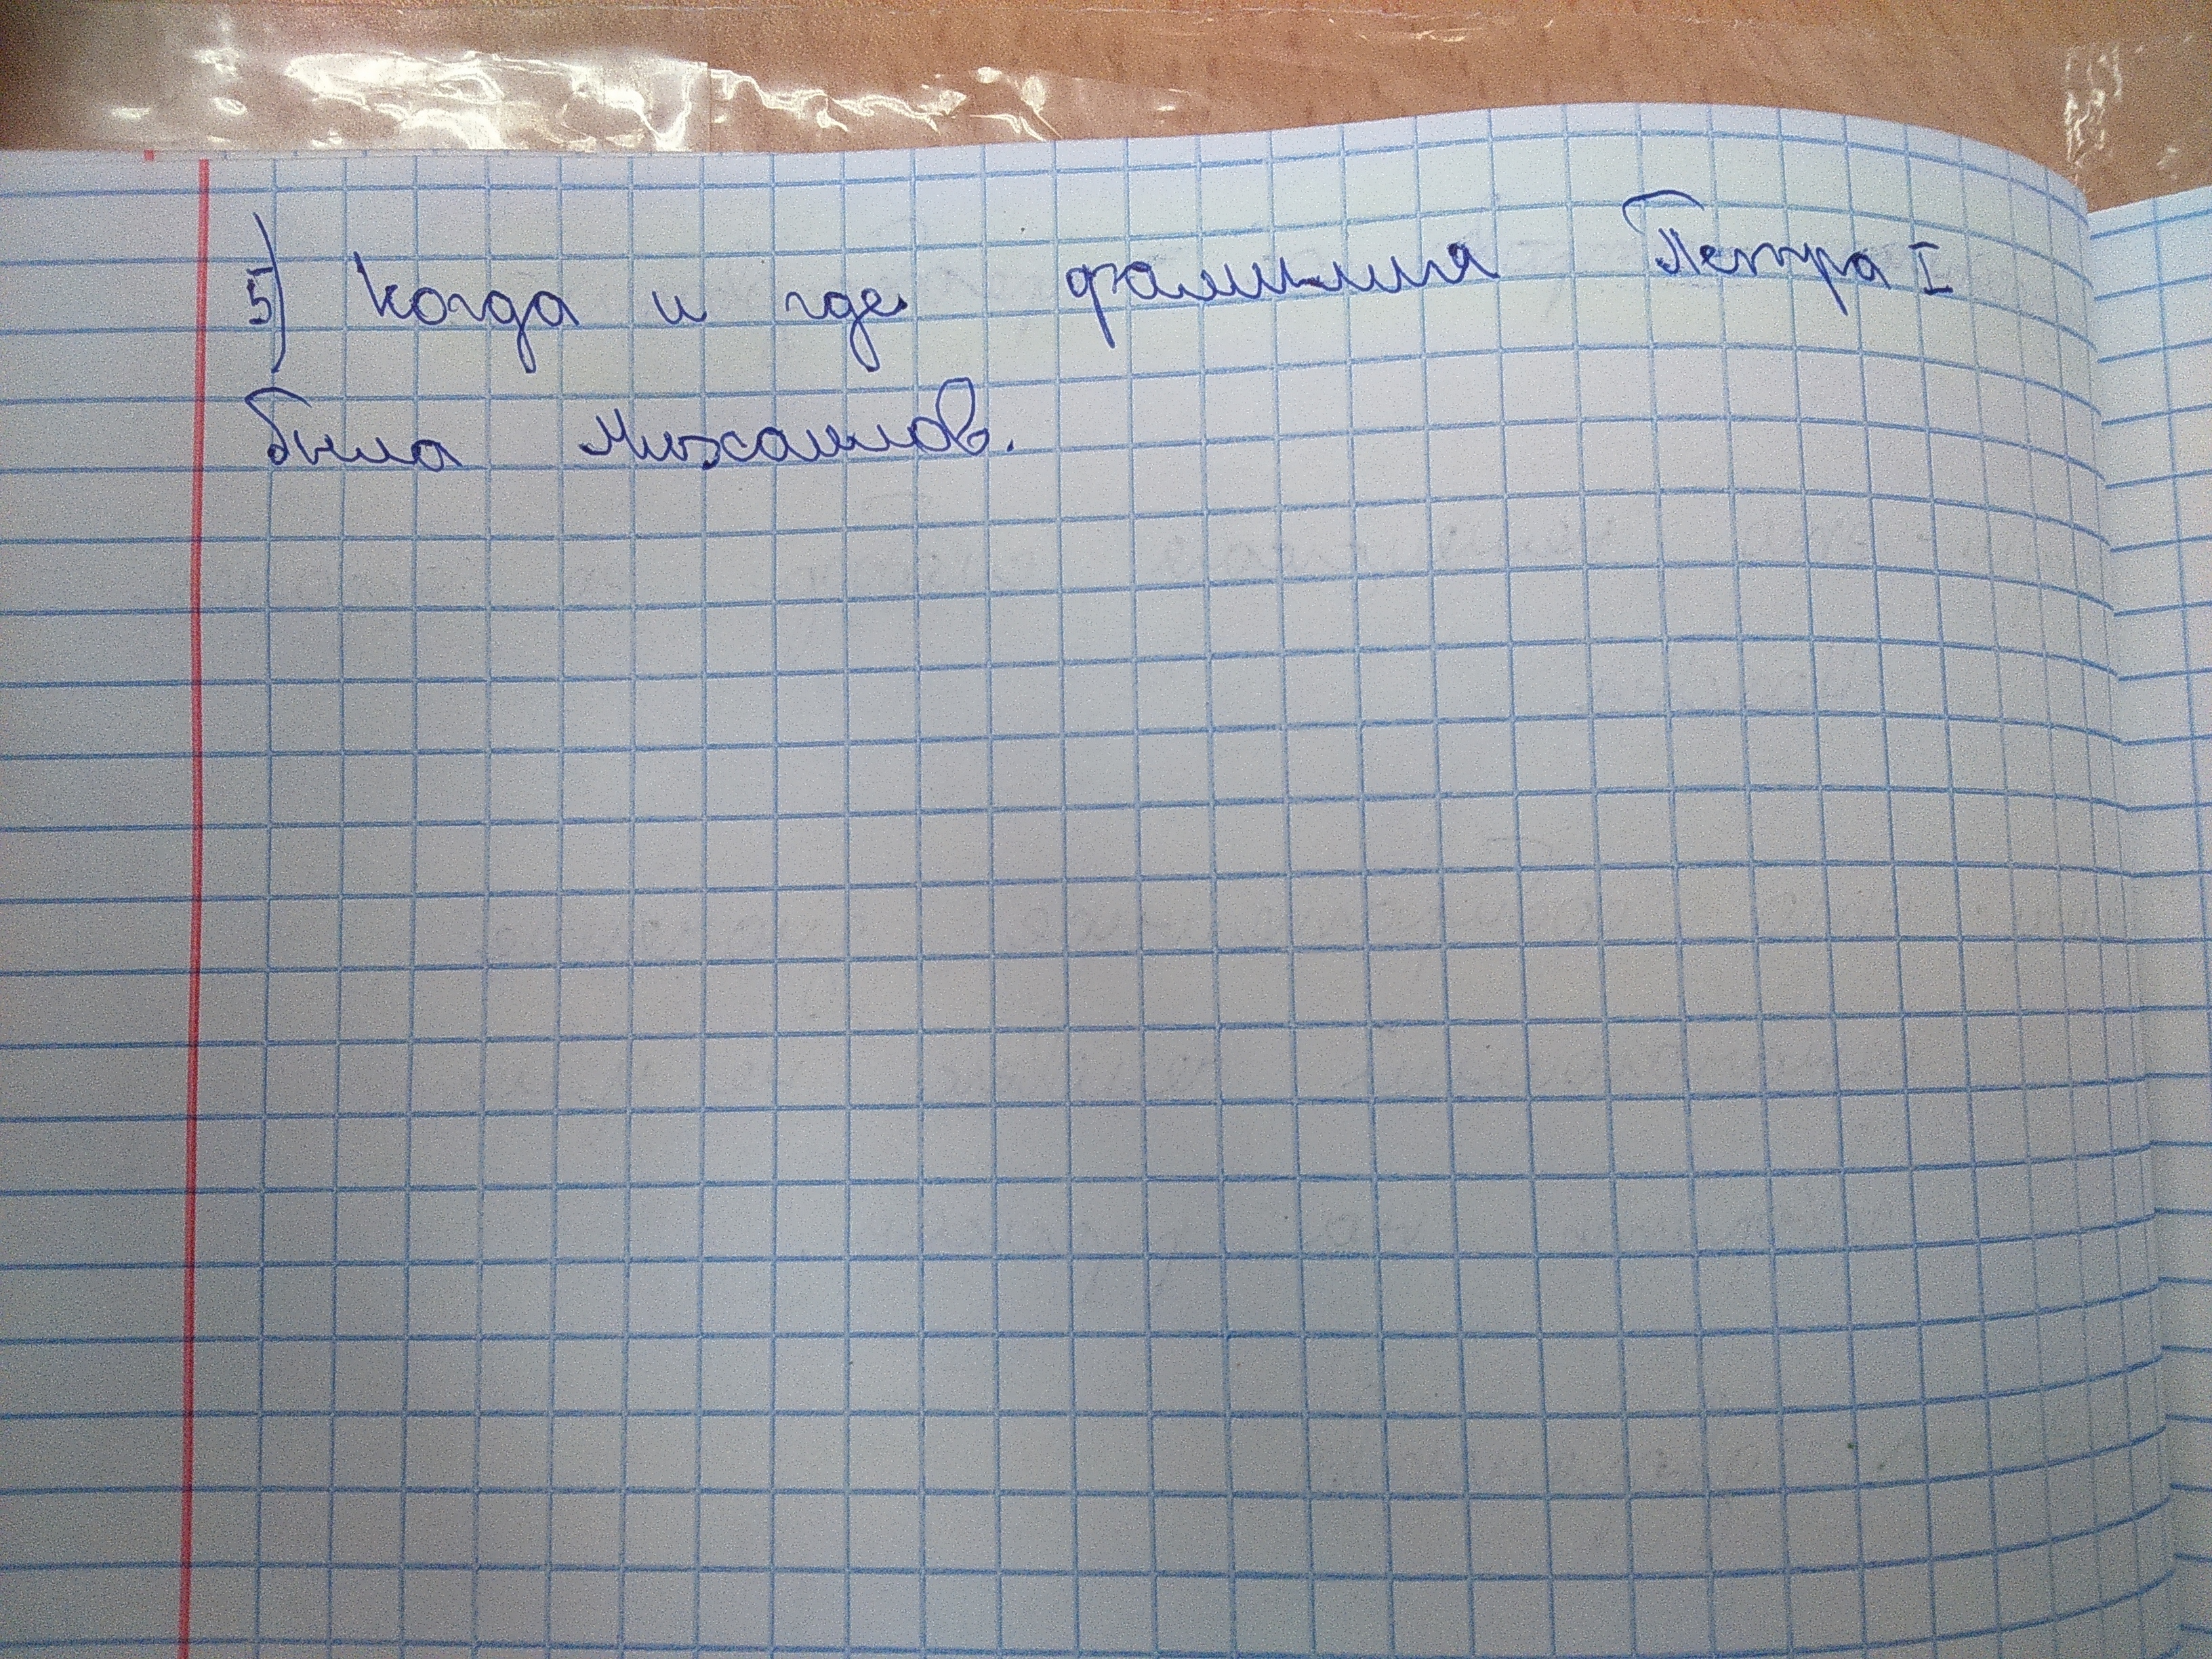 5) Когда и где фамилия Петра I
была Михаилов.